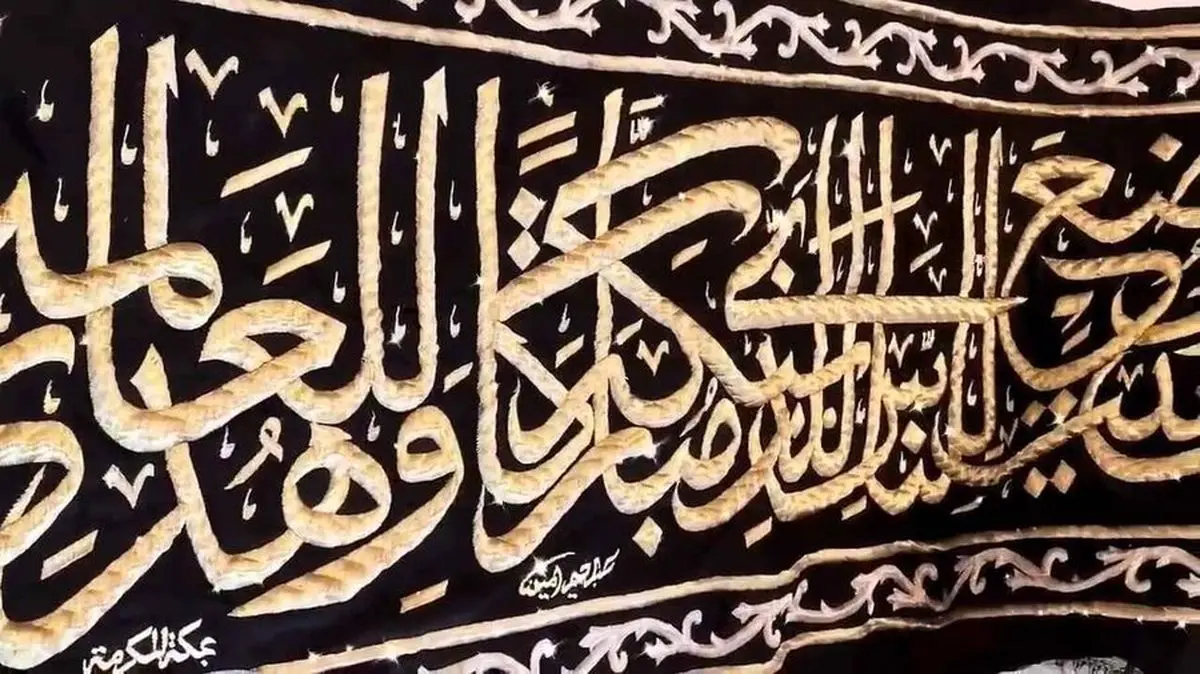 بَيْتٍ وُضِعَ لِلنَّاسِ لَلَّذِي بِبَكَّةَ مُبَارَكًا وَهُدًى لِلْعَالَمِينَ
عبدالرحيم امين
بمكة المكرمة